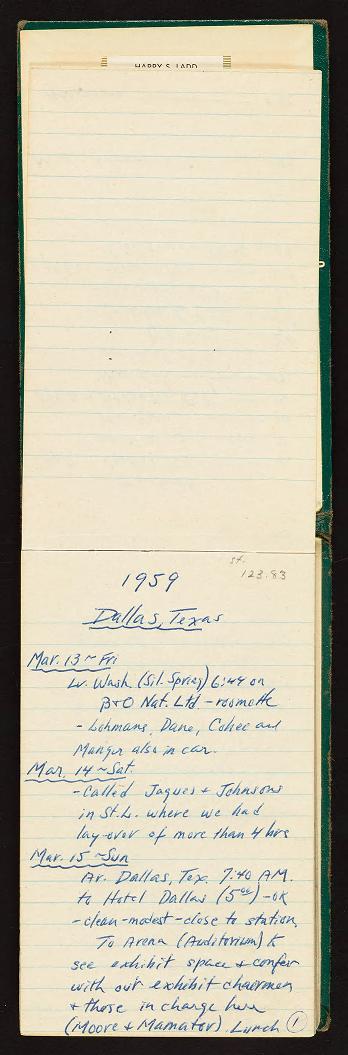 HARRY S. LADD
st.
123.83
1959
Dallas, Texas
Mar. 13 ~ Fri
Lv. Wash. (Sil. Spring) 6:44 on
B+O Nat. Ltd - roomette
- Lohmans, Dane, Cohee and
also in car.
Mar. 14 ~ Sat.
- Called Jaques + Johnsons
in St. L. where we had
lay-over of more than 4 hrs
Mar. 15 ~ Sun
Ar. Dallas, Tex. 7:40 A.M.
to Hotel Dallas (5⁰⁰) - OK
- clean - modest - close to station,
To Arena (Auditorium) to
see exhibit space + confer
with our exhibit chairmen
+ those in charge here
(Moore + Mamatov). Lunch
1